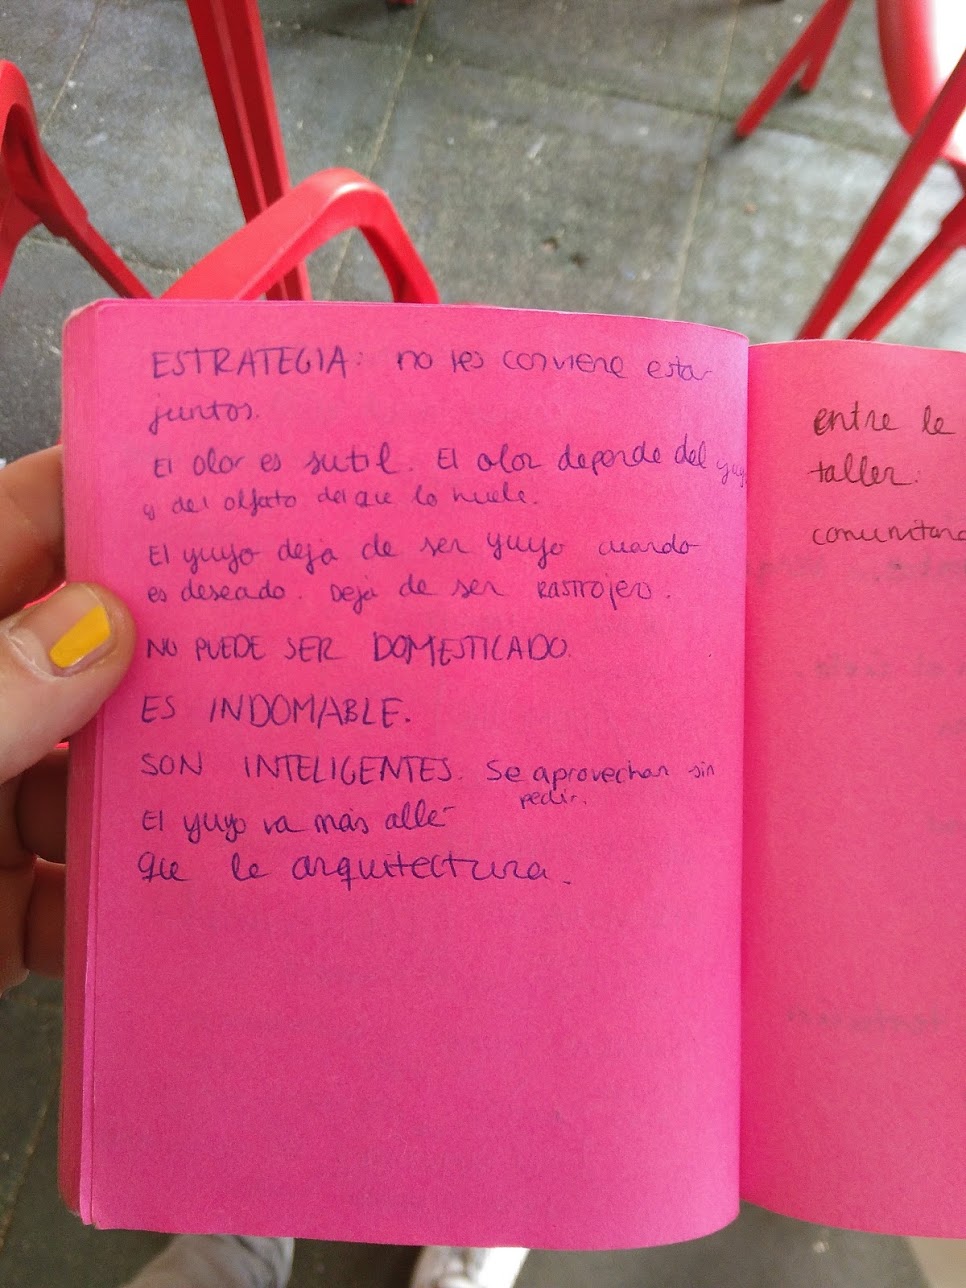 ESTRATEGIA: no les conviene estar
juntos.
El olor es sutil. El olor depende del yuyo
y del olfato del que lo huele.
El yuyo deja de ser yuyo cuando
es deseado. Deja de ser RASTROJERO.
NO PUEDE SER DOMESTICADO.
ES INDOMABLE.
SON INTELIGENTES. Se aprovechan sin
pedir.
El yuyo va más allá
que la arquitectura.
entre la
taller.
comunitaria